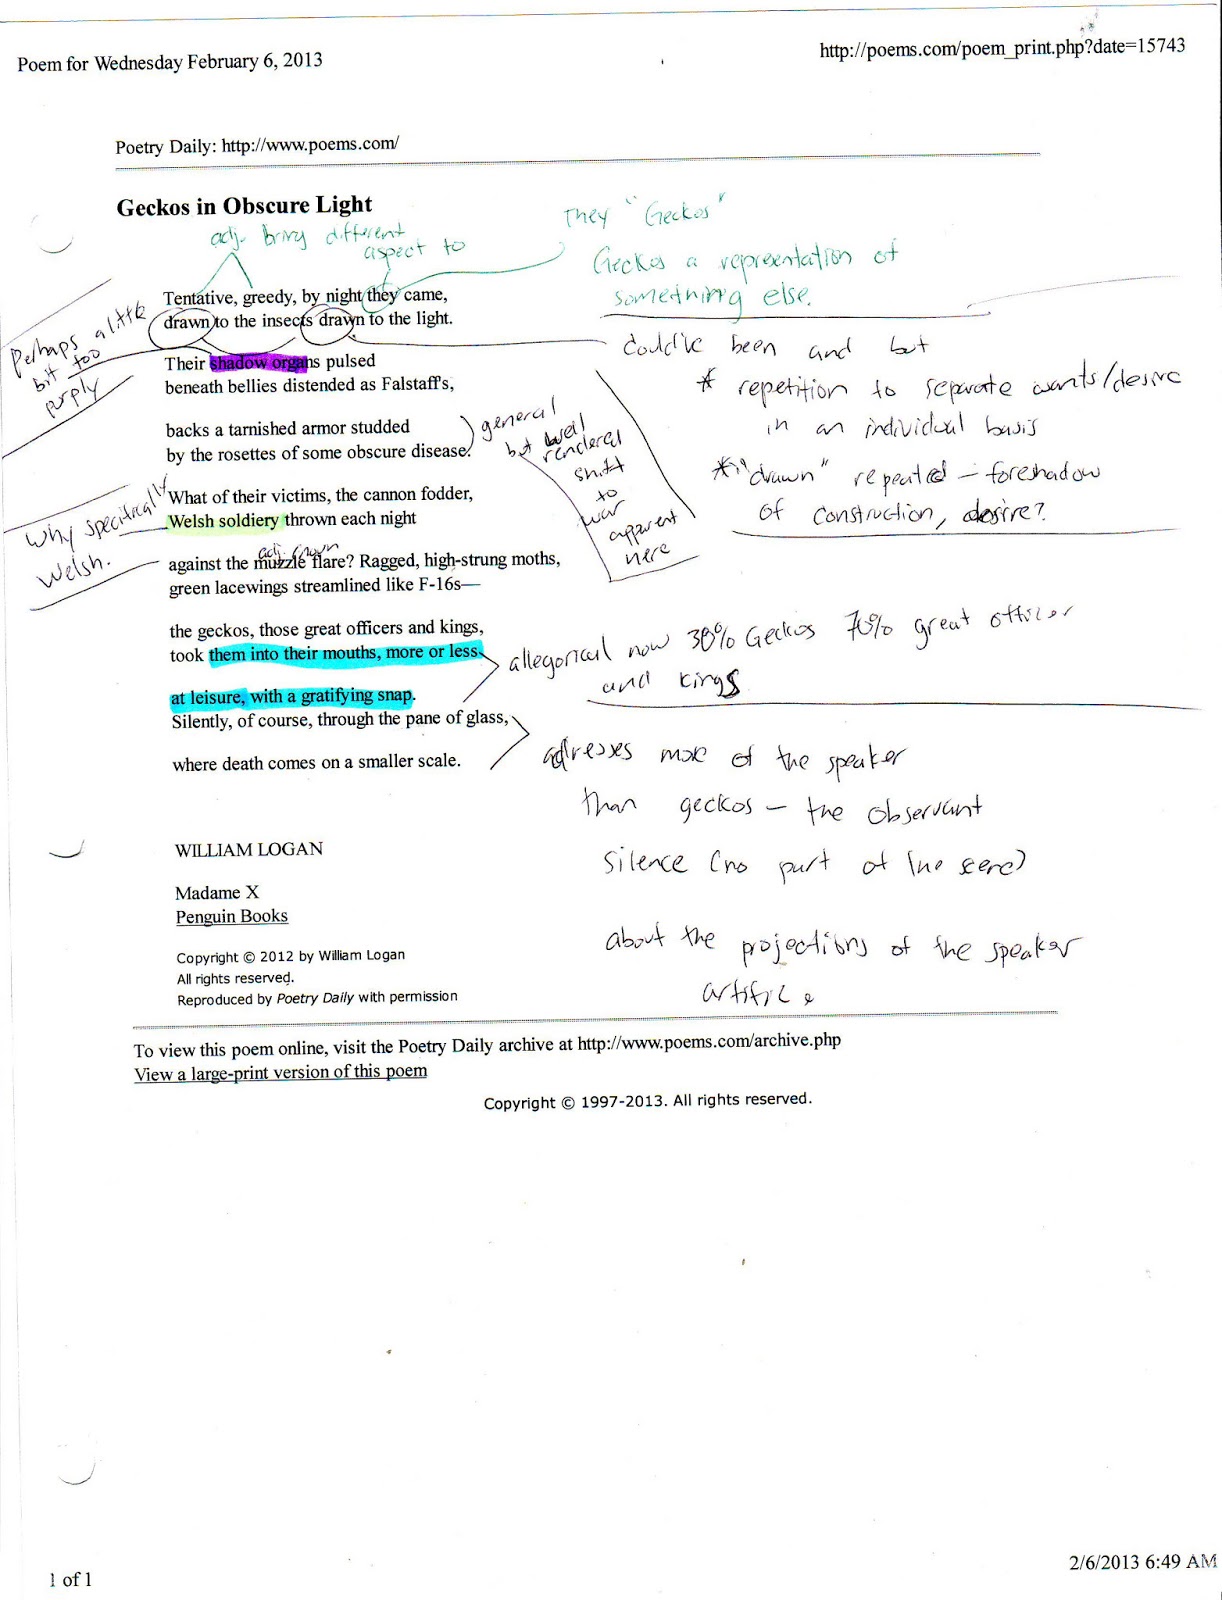 Poem for Wednesday February 6, 2013
http://poems.com/poem_print.php?date=15743
Poetry Daily: http://www.poems.com/
Geckos in Obscure Light
adj. bring different
aspect to
They "Geckos"
Geckos a representation of
something else.
Tentative, greedy, by night they came,
drawn to the insects drawn to the light.
Perhaps a little
bit too
purply
Could've been and but
* repetition to separate wants/desire
in an individual basis
* "drawn" repeated – foreshadow
of construction, desire?
Their shadow organs pulsed
beneath bellies distended as Falstaff's,
backs a tarnished armor studded
by the rosettes of some obscure disease.
general
but well
rendered
shift
to
war
apparent
here
What of their victims, the cannon fodder,
Welsh soldiery thrown each night
Why specifically
Welsh.
adj. noun
against the muzzle flare? Ragged, high-strung moths,
green lacewings streamlined like F-16s—
the geckos, those great officers and kings,
took them into their mouths, more or less
allegorical now 30% Geckos 70% great officer
and kings
at leisure, with a gratifying snap.
Silently, of course, through the pane of glass,
where death comes on a smaller scale.
adresses more of the speaker
than geckos – the observant
silence (no part of the scene)
about the projections of the speaker
artifice
WILLIAM LOGAN
Madame X
Penguin Books
Copyright © 2012 by William Logan
All rights reserved.
Reproduced by Poetry Daily with permission
To view this poem online, visit the Poetry Daily archive at http://www.poems.com/archive.php
View a large-print version of this poem
Copyright © 1997-2013. All rights reserved.
1 of 1
2/6/2013 6:49 AM